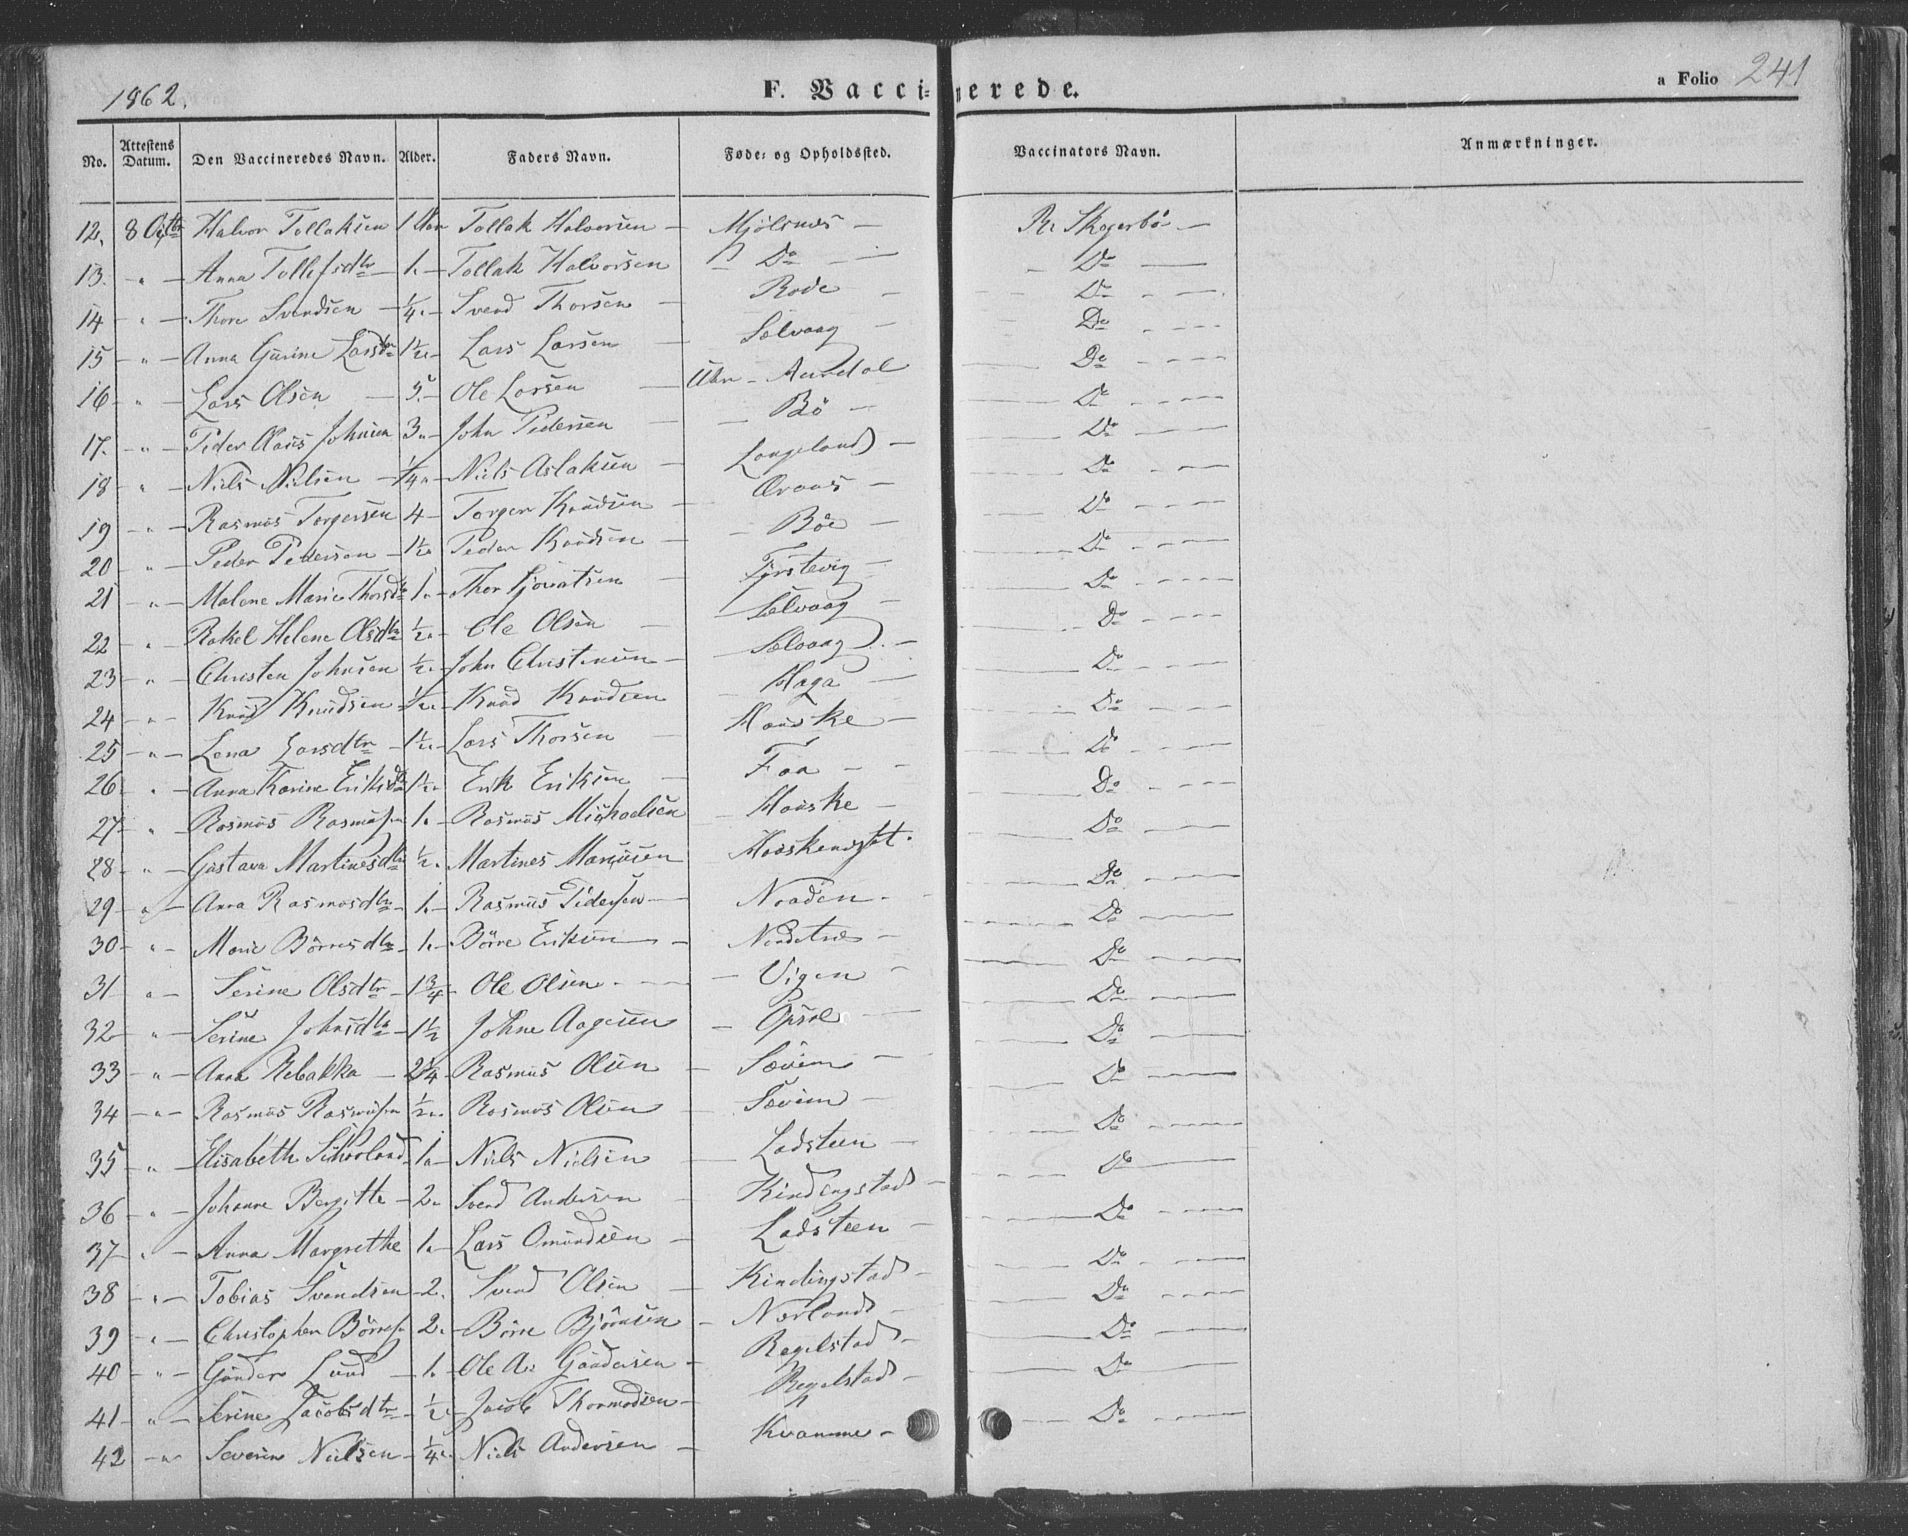 1862.
F. Vaccinerede.
a Folio 241
No. Attestens Datum. Den Vaccineredes Navn. Alder. Faders Navn. Føde- og Opholdssted. Vaccinators Navn. Anmærkninger.
12. 8 Halvor Tollaksen 1 Aar Tollak Halvorsen – Mjölsnes – R. Skogerbö –
13. " – Anna Tollefsdtr 1. – Tollak Halvorsen – Do – Do –
14 " – Thore Svendsen – 1/4. – Svend Thorsen – Rode – Do –
15 " – Anna Gurine Larsdtr 1 1/2. – Lars Larsen – Selvaag – Do –
16 – " – Lars Olsen – 5. – Ole Larsen – Aurdal – Do –
17. – " – Peder Olaus Johnsen 3. – John Pedersen – Bö – Do –
18 – " – Niels Nielsen – 1/4. – Niels Aslaksen – Langeland – Do –
19 – " – Rasmus Torgersen 4 – Torger Knudsen – – Do –
20 – " – Peder Pedersen – 1 1/2. – Peder Knudsen – Böe – Do –
21 – " – Malene Marie Thorsdtr 1. – Thor – – Do –
22 – " – Rakel Helene Olsdtr 1/2. – Ole Olsen – Selvaag – Do –
23 – " – Christen Johnsen 1/2. – John Christensen – Selvaag – Do –
24 – " – Knud Knudsen – 1/2. – Knud Knudsen – Haga – Do –
25 – " – Lena Larsdtr – 1 1/2. – Lars Thorsen – Hauske – Do –
26 – " – Anna Karine Eriksdtr 1 1/2. – Erik Eriksen – Faa – Do –
27 – " – Rasmus Rasmussen 1. – Rasmus Michaelsen – Hauske – Do –
28 – " – Gustava Martinesdtr 1/2. – Martines – – Do –
29 – " – Anna Rasmusdtr – 1. – Rasmus Pedersen – Naaden – Do –
30 – " – Marie Börresdtr – 1. – Börre Eriksen – – Do –
31 – " – Serine Olsdtr – 1 3/4 – Ole Olsen – Vigen – Do –
32 – " – Serine Johnsdtr – 1 1/2 Johne Aagesen – Opsal – Do –
33 – " – Anna Rebakka – 2 1/4 – Rasmus Olsen – Sævim – Do –
34 – " – Rasmus Rasmussen 1/2. – Rasmus Olsen – Sævim – Do –
35 – " – Elisabeth – 1. – Niels Nielsen – Ladsteen – Do –
36 – " – Johanne Bergitte – 2. – Svend Andersen – Kindingstad – Do –
37 – " – Anna Margrethe 1. – Lars Omundsen – Ladsteen – Do –
38 – " – Tobias Svendsen – 2. – Svend Olsen – Kindingstad – Do –
39 – " – Christopher Börresen 2. – Börre Björnsen – Nærland – Do –
40 – " – Gunder Lund – 1. – Ole A. Gundersen – Regelstad – Do –
41 – " – Serine Jacobsdtr – 1/2. – Jacob Thormodsen – Regelstad – Do –
42 – " – Severin Nielsen – 1/4. – Niels Andersen – Kvamme –